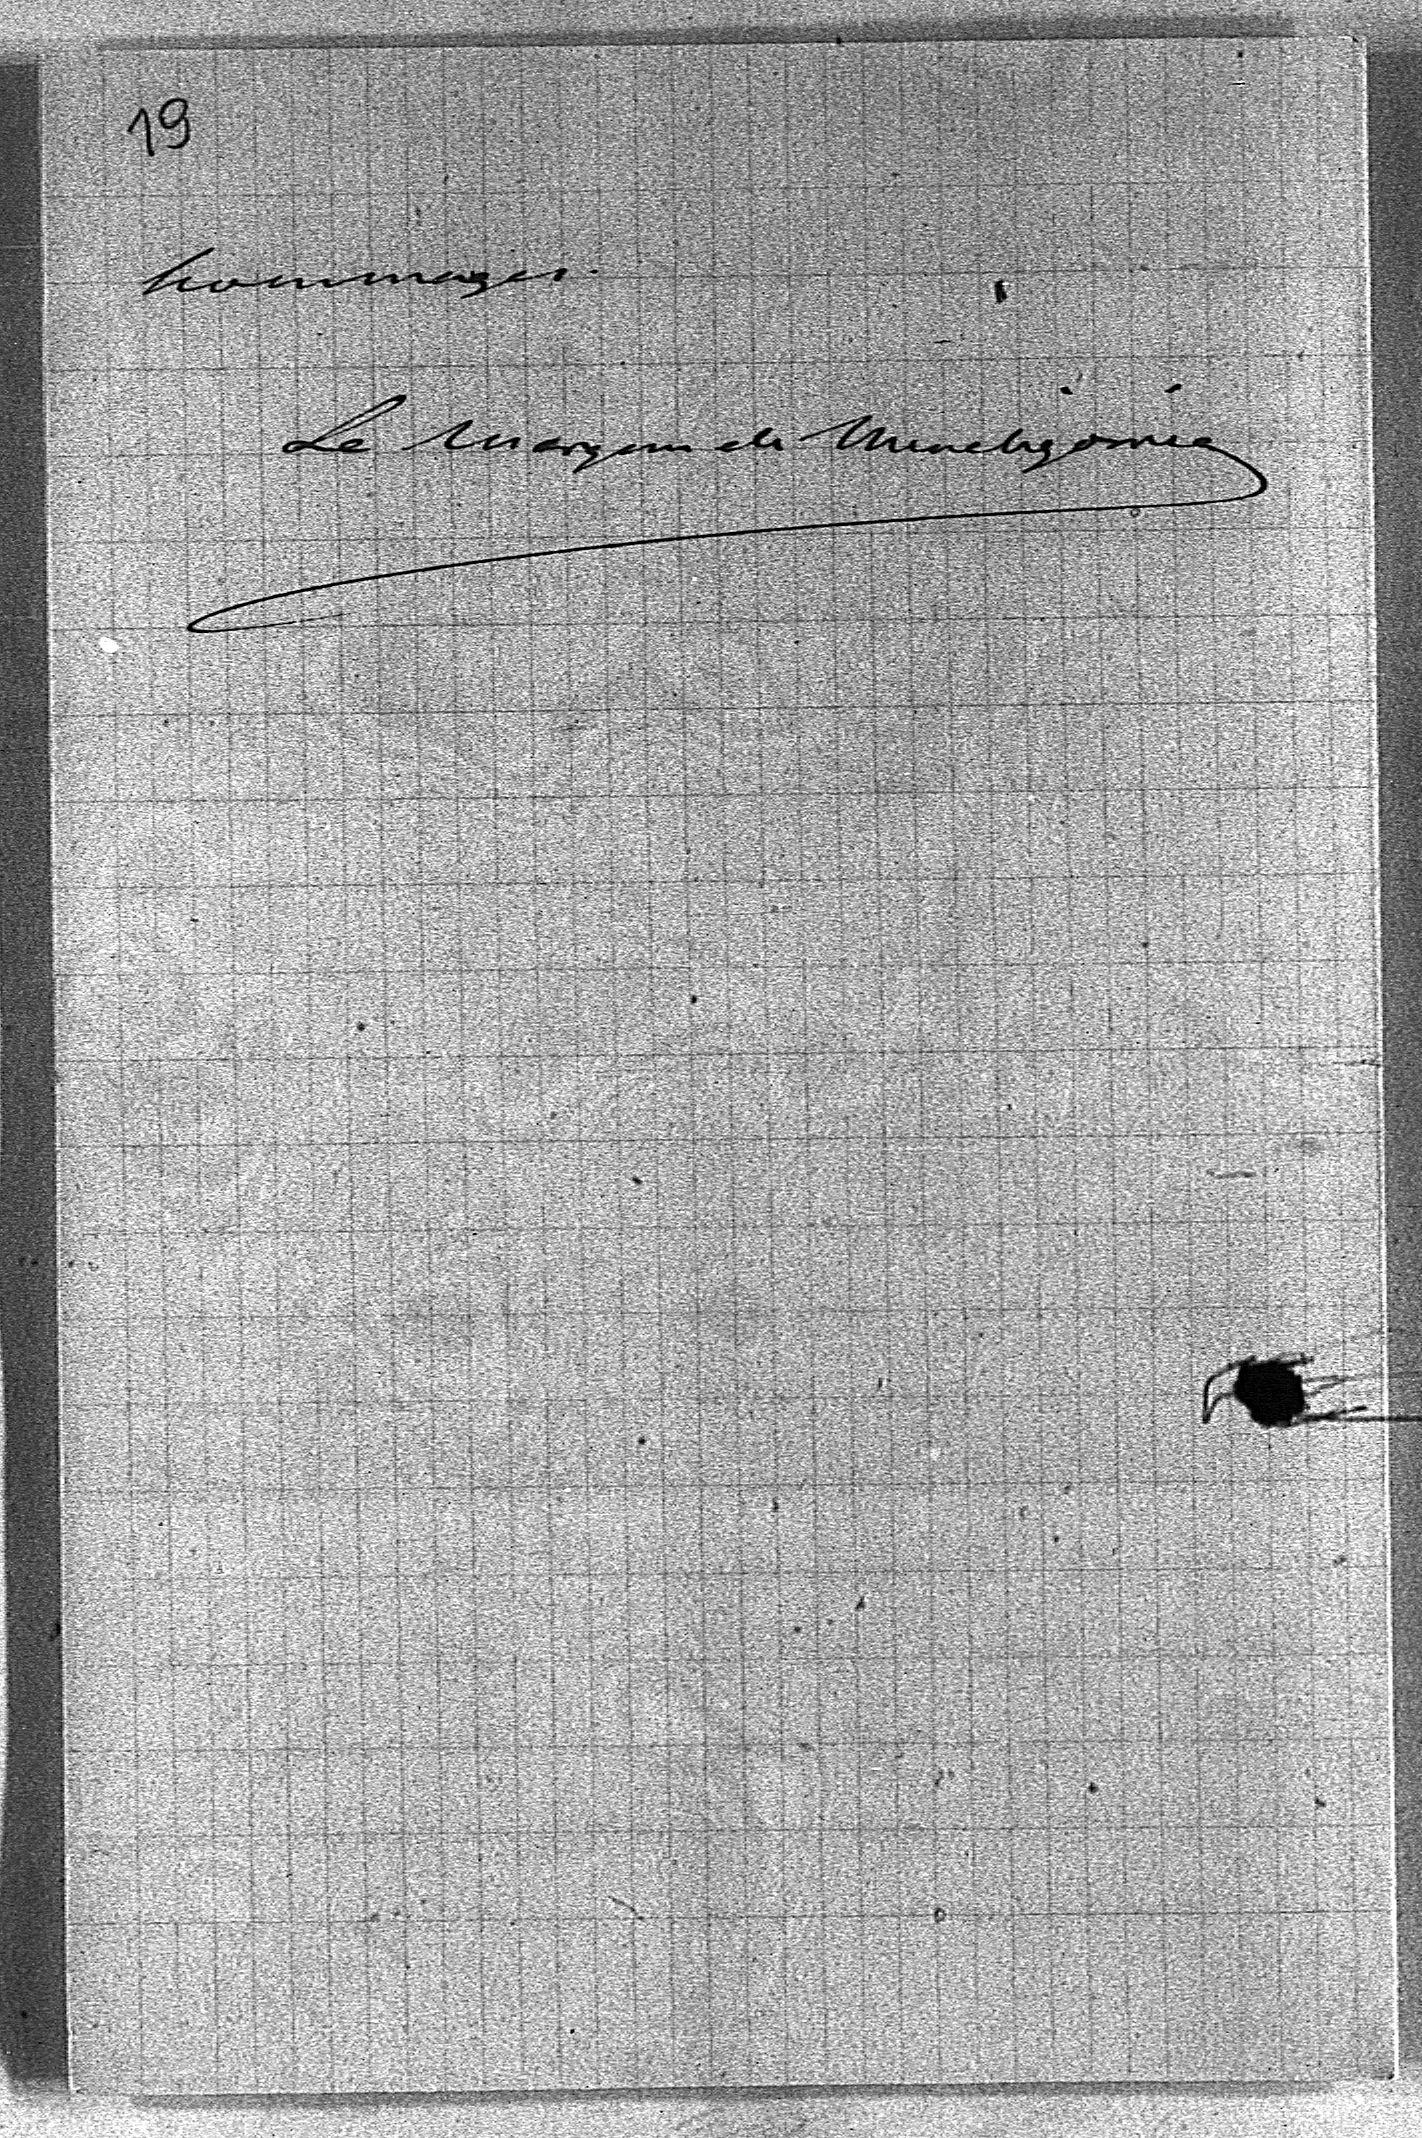 19
hommages.
Le Marquis de